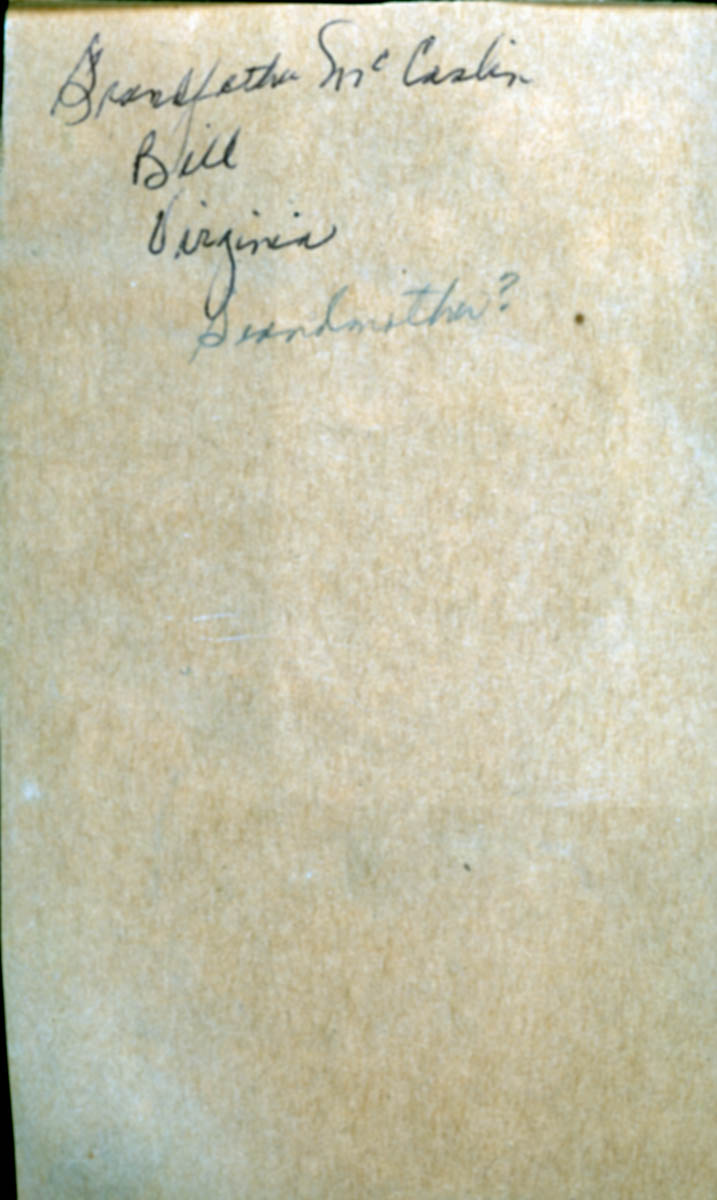 Grandfather Mc Caslin
Bill
Virginia
Grandmother?